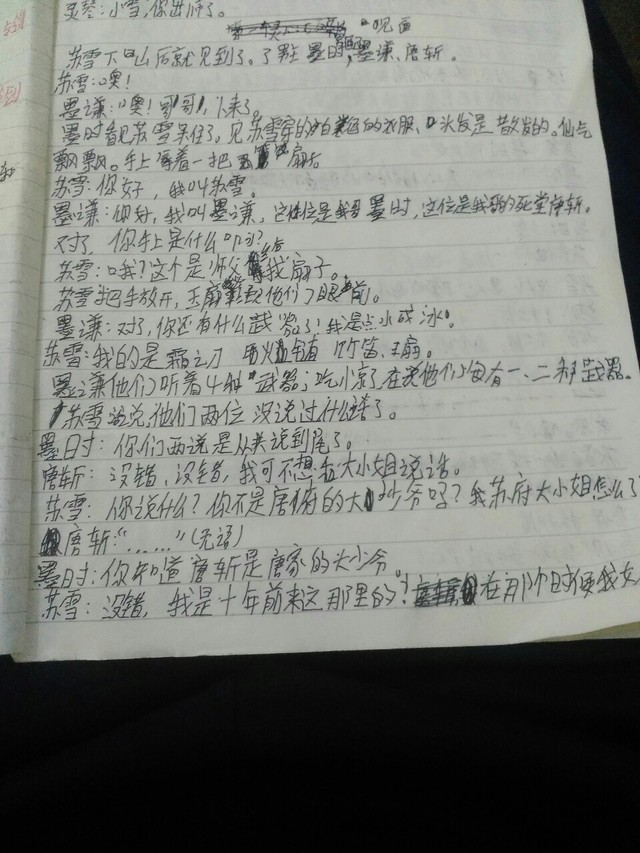 灵琴:小雪,你出师了。
见面
苏雪下山后就见到了。了墨时,墨谦、唐斩。
苏雪:噢!
墨谦:噢!哥哥,人来了。
墨时看见苏雪呆住了,见苏雪穿的白色的衣服、头发是散发的。仙气
飘飘。手上拿着一把玉扇
苏雪:你好,我叫苏雪。
墨谦:你好,我叫墨谦,这位是我哥墨时,这位是我哥的死堂唐斩。
对了,你手上是什么呀?
苏雪:哦?这个是师父给我扇子。
苏雪把手放开,玉扇到他们眼前。
墨谦:对了,你还有什么武器了!我是点水成冰。
苏雪:我的是霜之刀 竹笛、玉扇。
墨谦他们听着4种武器,吃惊了在说他们每有一、二种武器。
苏雪没说,他们两位没说过什么话了。
墨时:你们两说是从头说到尾了。
唐斩:没错、没错,我可不想和大小姐说话。
苏雪:你说什么?你不是唐府的大少爷吗?我苏府大小姐怎么了
唐斩:“……”(无语)
墨时:你知道唐斩是唐家的大少爷。
苏雪:没错,我是十年前来这那里的?在那个时候我女